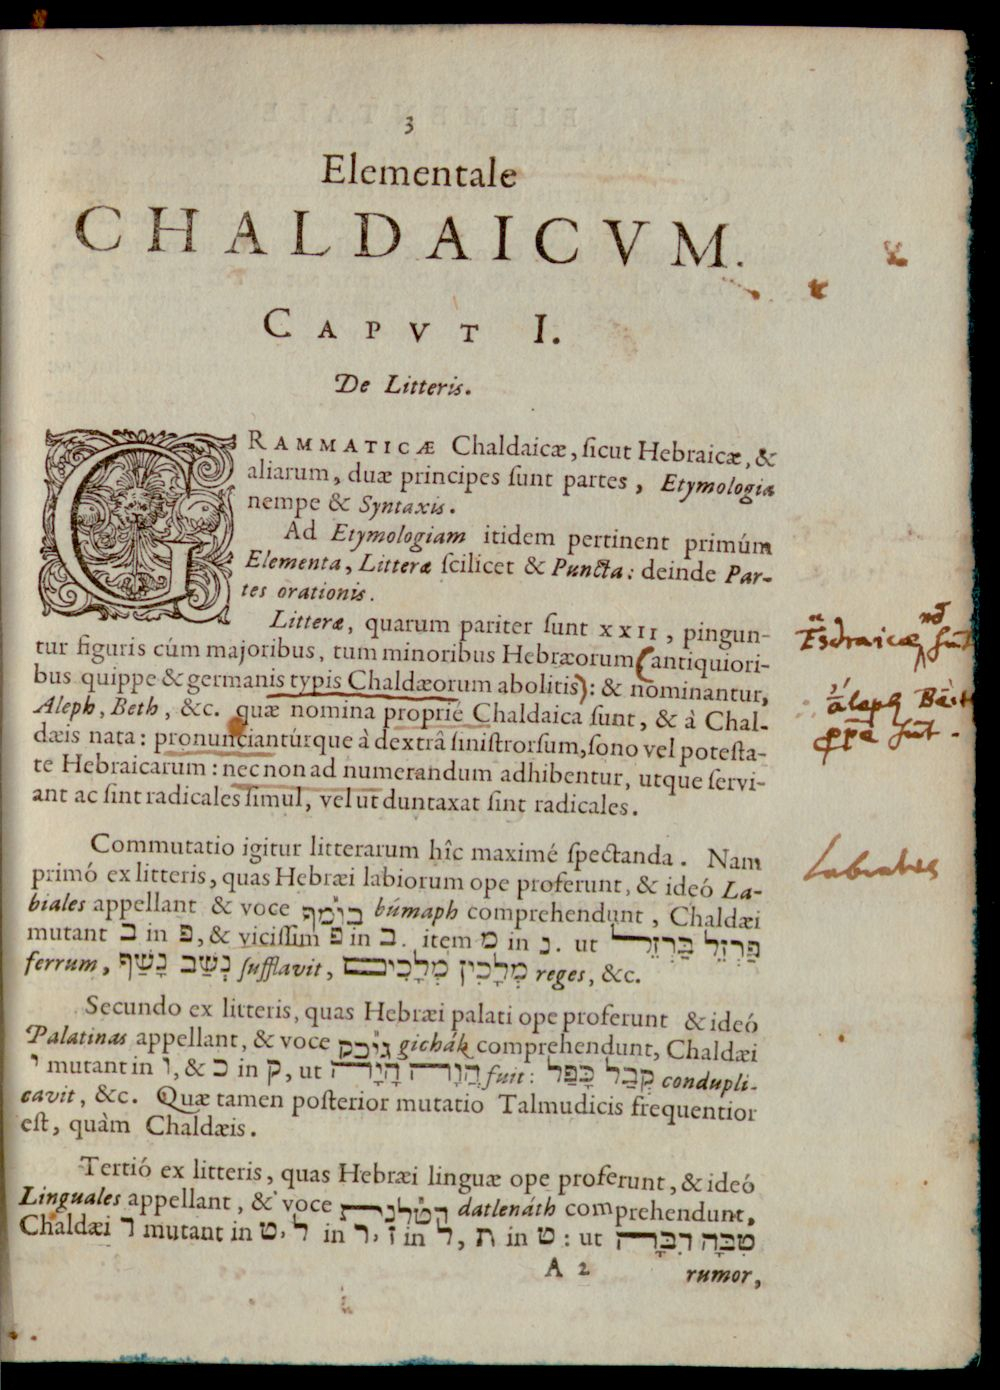 3
Elementale
CHALDAICVM.
CAPVT I.
De Litteris.
GRAMMATICÆ Chaldaicæ, ſicut Hebraicæ, &
aliarum, duæ principes ſunt partes, Etymologia
nempe & Syntaxis.
Ad Etymologiam itidem pertinent primúm
Elementa, Litteræ ſcilicet & Puncta: deinde Par-
tes orationis.
Litteræ, quarum pariter ſunt XXII, pingun-
tur figuris cúm majoribus, tum minoribus Hebræorum (antiquiori-
bus quippe & germanis typis Chaldæorum abolitis): & nominantur,
Aleph, Beth, &c. quæ nomina proprié Chaldaica ſunt, & à Chal-
dæis nata: pronunciantúrque à dextrâ ſiniſtrorſum, ſono vel poteſta-
te Hebraicarum: nec non ad numerandum adhibentur, utque ſervi-
ant ac ſint radicales ſimul, vel ut duntaxat ſint radicales.
Eſdraicæ
nō ſūt
Aleph
ſūt.
Commutatio igitur litterarum hîc maximé ſpectanda. Nam
primó ex litteris, quas Hebræi labiorum ope proferunt, & ideó La-
biales appellant & voce בומף búmaph comprehendunt, Chaldæi
mutant ב in פ, & viciſſim פ in ב. item מ in נ. ut פַּרְזֵל בַּרְזֵל
ferrum, נְשַׁב נָשַׁף ſufflavit, מְלָכִין מְלָכִים reges, &c.
Labiales
Secundo ex litteris, quas Hebræi palati ope proferunt & ideó
Palatinas appellant, & voce גיכק gichák comprehendunt, Chaldæi
י mutant in ו, & כ in ק, ut הֲוָה הָיָה fuit: קְבַל כָּפַל condupli-
cavit, &c. Quæ tamen poſterior mutatio Talmudicis frequentior
eſt, quàm Chaldæis.
Tertió ex litteris, quas Hebræi linguæ ope proferunt, & ideó
Linguales appellant, & voce דטלנת datlenáth comprehendunt,
Chaldæi ד mutant in ט, ל in ר, ז in ד, ת in ט: ut טִבָּה דִבָּה
A 2 rumor,